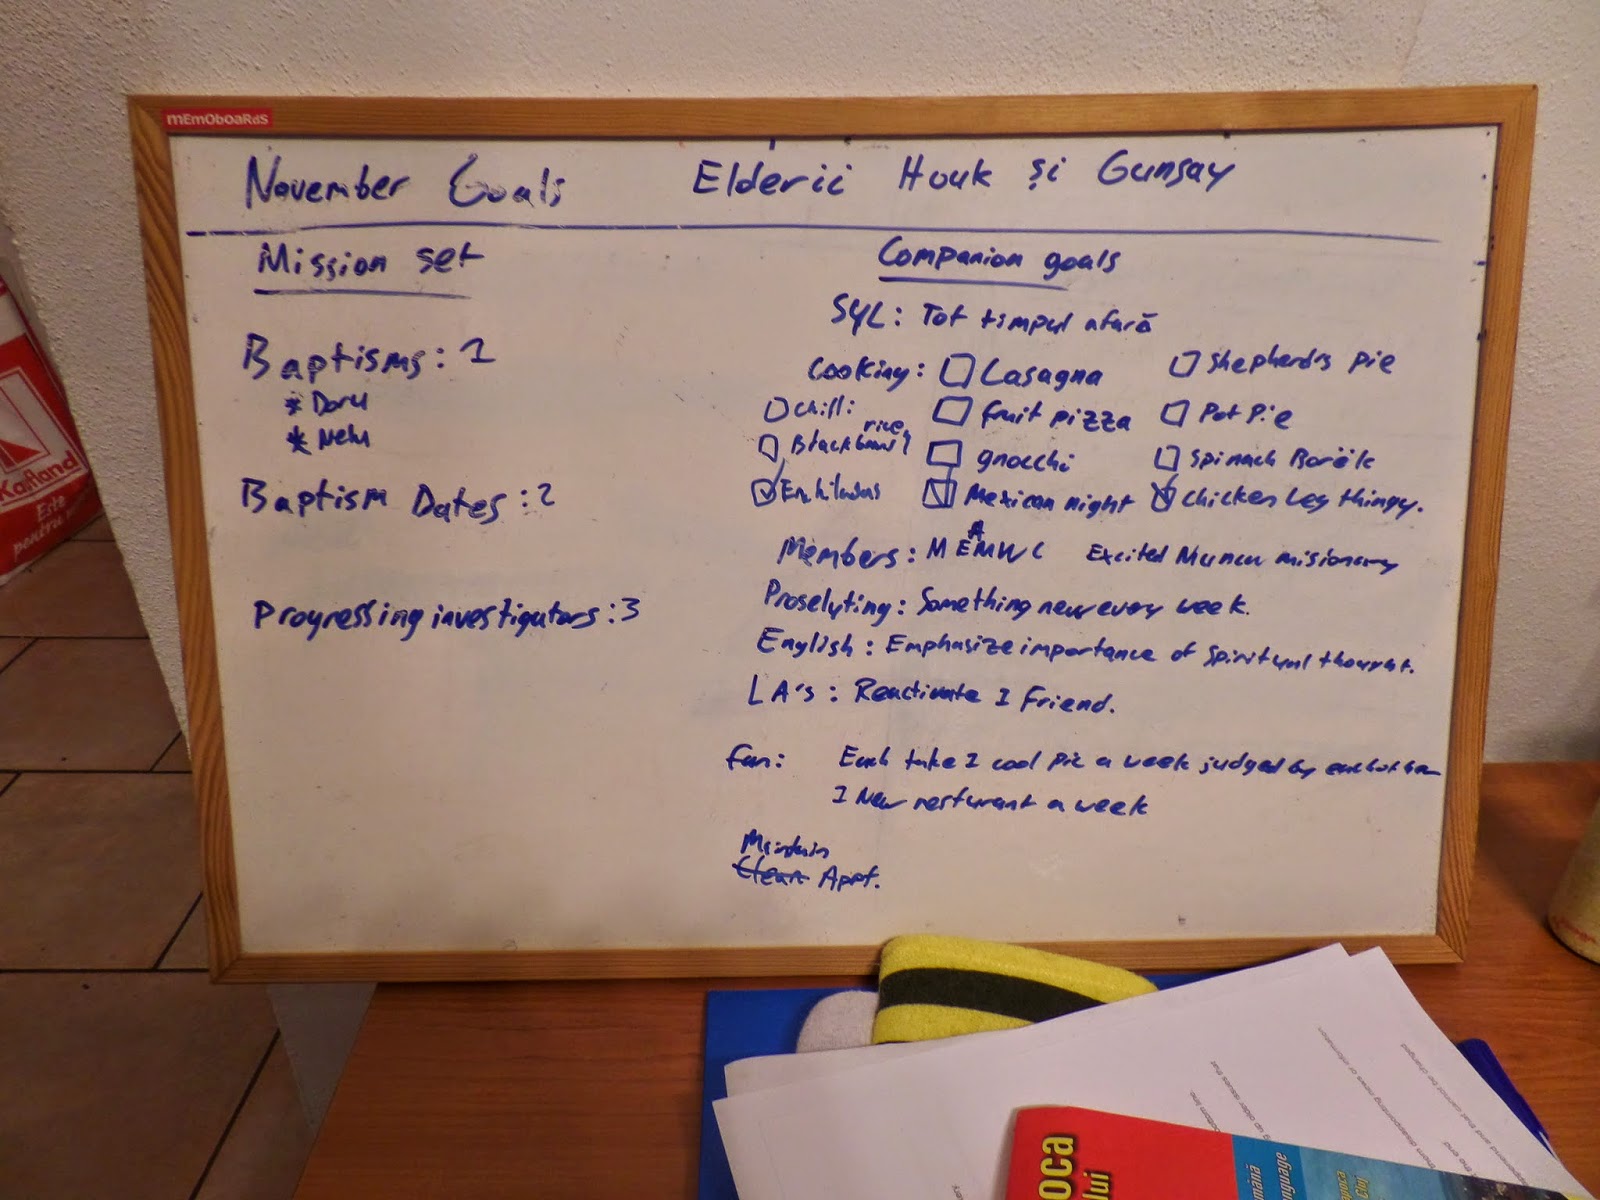 mEmOboaRdS
November Goals Elderii Houk și Gunsay
Mission set
Baptisms: 1
* Doru
* Nelu
Baptism Dates: 2
Progressing investigators: 3
Companion goals
SYL: Tot timpul afară
Cooking: Lasagna Shepherds pie
Chilli fruit pizza Pot Pie
rice,
gnocchi Spinach Borëk
Mexican night Chicken Leg thingy.
Members: MEAMWC Excited misionary
Proselyting: Something new every week.
English: Emphasize importance of spiritual thought.
LA's: Reactivate 1 Friend.
Fun: Each take 1 cool pic a week judged by
1 New resturant a week
Maintain
Clean Appt.
Kaufland
Este
pentru
oca
lui
mână
nguage
Cluj